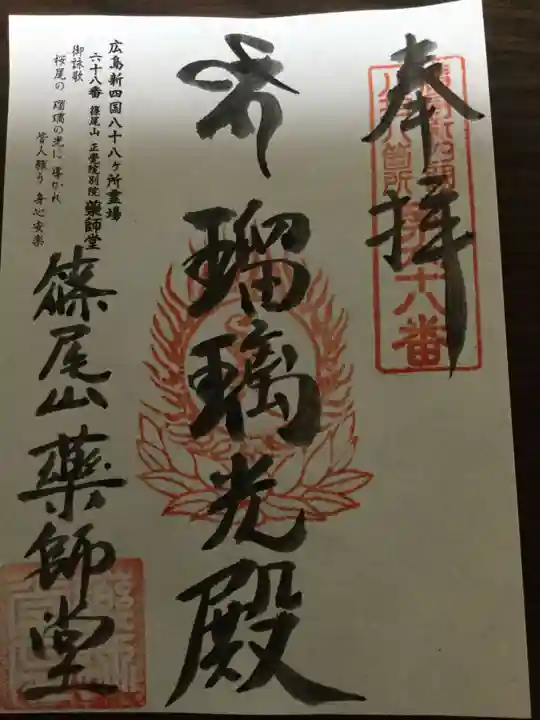 奉拝
八十八箇所第六十八番
瑠璃光殿
広島新四国八十八ヶ所霊場
六十八番 篠尾山 正覺院別院 藥師堂
御詠歌
桜尾の 瑠璃の光に 導かれ
皆人願う 身心安楽
篠尾山藥師堂